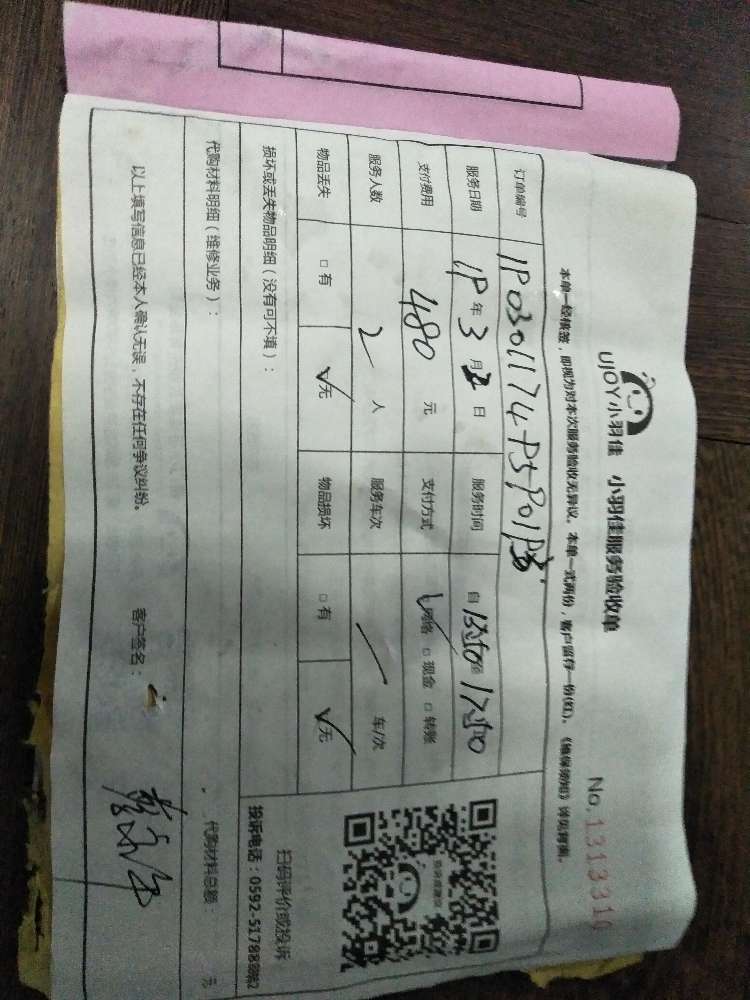 UJOY小羽佳 小羽佳服务验收单
No.1313310
本单一经核签,即视为对本次服务验收无异议。本单一式两份,客户留存一份(红)。《维保须知》详见背面。
订单编号
服务日期 19年3月2日 服务时间 自 至
支付费用 480元 支付方式 ☑网络 □现金 □转账
服务人数 2人 服务车次 一 车/次
物品丢失 □有 ☑无 物品损坏 □有 ☑无
损坏或丢失物品明细(没有可不填):
扫码评价或投诉
投诉电话:0592-5178
代购材料明细(维修业务): 代购材料总额: 元
以上填写信息已经本人确认无误,不存在任何争议纠纷。 客户签名: